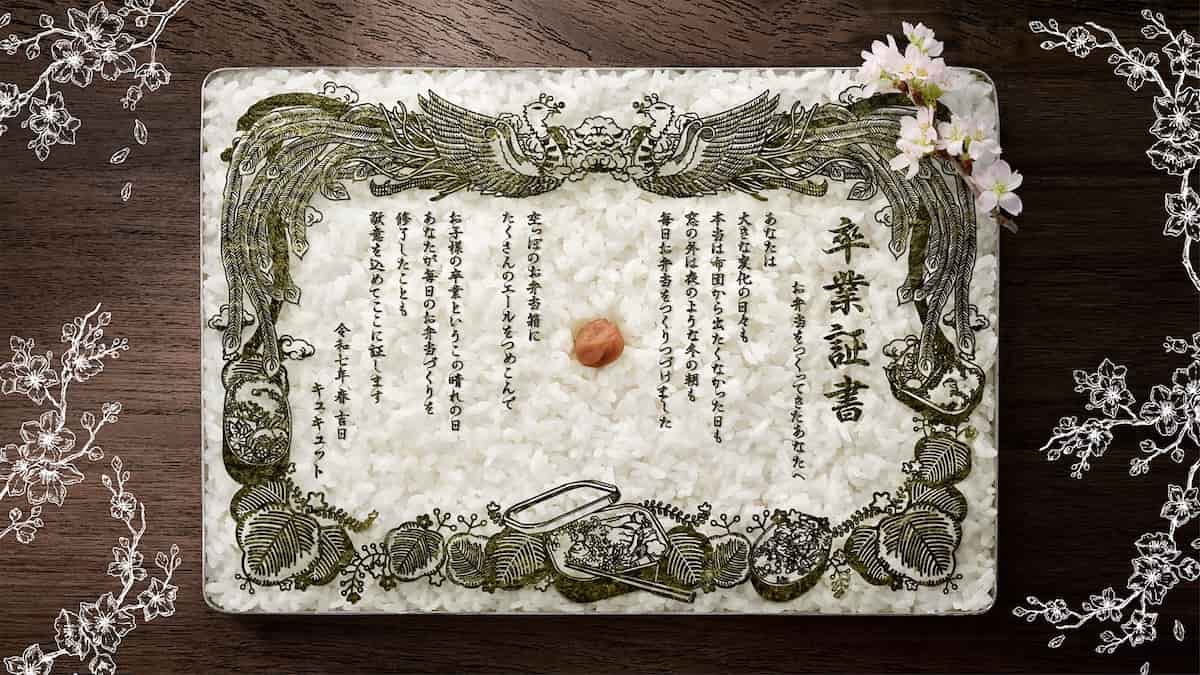 卒業証書
お弁当をつくってきたあなたへ
あなたは
大きな変化の日々も
本当は布団から出たくなかった日も
窓の外は夜のような冬の朝も
毎日お弁当をつくりつづけました
空っぽのお弁当箱に
たくさんのエールをつめこんで
お子様の卒業というこの晴れの日
あなたが毎日のお弁当づくりを
修了したことも
敬意を込めてここに証します
令和七年 春 吉日
キュキュット